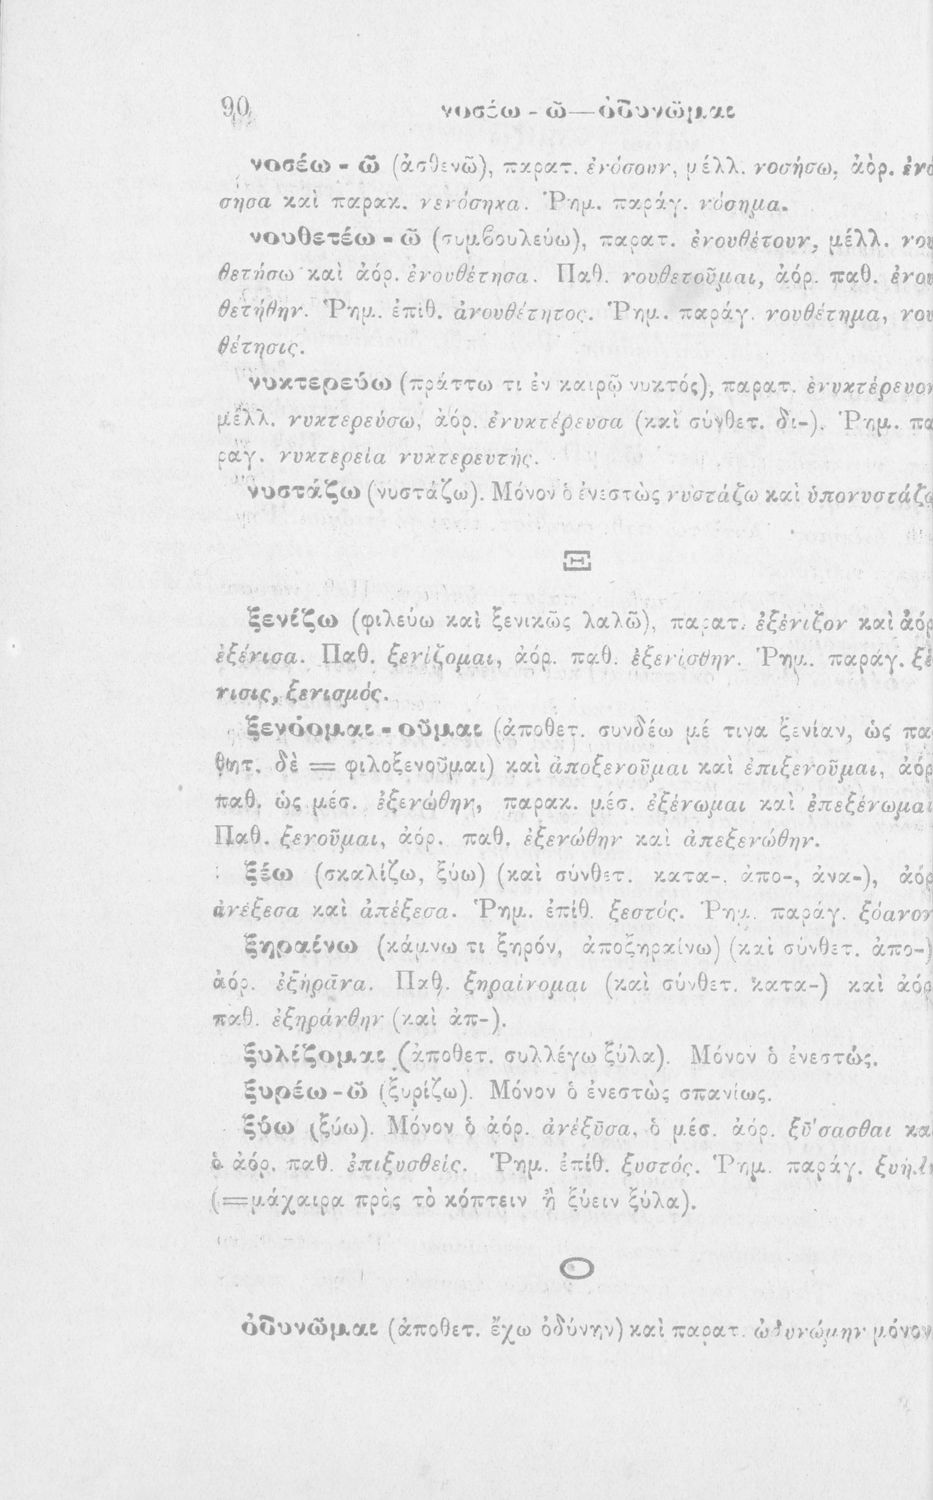 90 νοσέω - ῶ—ὀδυνῶμαι
νοσέω - ῶ (ἀσθενῶ), παρατ. ἐνόσουν, μέλλ. νοσήσω, ἀόρ. ἐνό
σησα καὶ παρακ. νενόσηκα. Ῥημ. παράγ. νόσημα.
νουθετέω - ῶ (συμβουλεύω), παρατ. ἐνουθέτουν, μέλλ. νου
θετήσω καὶ ἀόρ. ἐνουθέτησα. Παθ. νουθετοῦμαι, ἀόρ. παθ. ἐνου
θετήθην. Ῥημ. ἐπιθ. ἀνουθέτητος. Ῥημ. παράγ. νουθέτημα, νου
θέτησις.
νυκτερεύω (πράττω τι ἐν καιρῷ νυκτός), παρατ. ἐνυκτέρευον
μέλλ. νυκτερεύσω, ἀόρ. ἐνυκτέρευσα (καὶ σύνθετ. δι-). Ῥημ. πα
ράγ. νυκτερεία νυκτερευτής.
νυστάζω (νυστάζω). Μόνον ὁ ἐνεστὼς νυστάζω καὶ ὑπονυστάζω
Ξ
ξενίζω (φιλεύω καὶ ξενικῶς λαλῶ), παρατ. ἐξένιζον καὶ ἀόρ
ἐξένισα. Παθ. ξενίζομαι, ἀόρ. παθ. ἐξενίσθην. Ῥημ. παράγ. ξέ
νισις, ξενισμός.
ξενόομαι - οῦμαι (ἀποθετ. συνδέω μέ τινα ξενίαν, ὡς πα
θητ. δὲ = φιλοξενοῦμαι) καὶ ἀποξενοῦμαι καὶ ἐπιξενοῦμαι, ἀόρ
παθ. ὡς μέσ. ἐξενώθην, παρακ. μέσ. ἐξένωμαι καὶ ἐπεξένωμαι
Παθ. ξενοῦμαι, ἀόρ. παθ. ἐξενώθην καὶ ἀπεξενώθην.
ξέω (σκαλίζω, ξύω) (καὶ σύνθετ. κατα-, ἀπο-, ἀνα-), ἀόρ
ἀνέξεσα καὶ ἀπέξεσα. Ῥημ. ἐπίθ. ξεστός. Ῥημ. παράγ. ξόανον
ξηραίνω (κάμνω τι ξηρόν, ἀποξηραίνω) (καὶ σύνθετ. ἀπο-)
ἀόρ. ἐξήρᾱνα. Παθ. ξηραίνομαι (καὶ σύνθετ. κατα-) καὶ ἀόρ
παθ. ἐξηράνθην (καὶ ἀπ-).
ξυλίζομαι (ἀποθετ. συλλέγω ξύλα). Μόνον ὁ ἐνεστώς.
ξυρέω - ῶ (ξυρίζω). Μόνον ὁ ἐνεστὼς σπανίως.
ξύω (ξύω). Μόνον ὁ ἀόρ. ἀνέξῡσα, ὁ μέσ. ἀόρ. ξῡ́σασθαι κα
ὁ ἀόρ. παθ. ἐπιξυσθείς. Ῥημ. ἐπίθ. ξυστός. Ῥημ. παράγ.
(=μάχαιρα πρὸς τὸ κόπτειν ἢ ξύειν ξύλα).
Ο
ὀδυνῶμαι (ἀποθετ. ἔχω ὀδύνην) καὶ παρατ. ὠδυνώμην μόνον